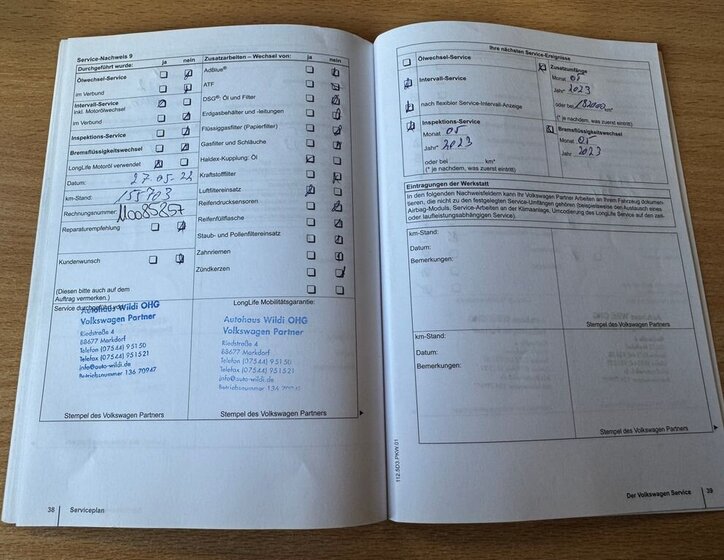 Service-Nachweis 9
Durchgeführt wurde: ja nein
Ölwechsel-Service
im Verbund
Intervall-Service
inkl. Motorölwechsel
im Verbund
Inspektions-Service
Bremsflüssigkeitswechsel
LongLife Motoröl verwendet
Datum: 27.05.22
km-Stand: 155703
Rechnungsnummer
Reparaturempfehlung
Kundenwunsch
(Diesen bitte auch auf dem
Auftrag vermerken.)
Service durchgeführt von:
Autohaus Wildi OHG
Volkswagen Partner
Riedstraße 4
88677 Markdorf
Telefon (07544) 95150
Telefax (07544) 951521
info@auto-wildi.de
Betriebsnummer 136 70947
Stempel des Volkswagen Partners
Zusatzarbeiten – Wechsel von: ja nein
AdBlue®
ATF
DSG®: Öl und Filter
Erdgasbehälter und -leitungen
Flüssiggasfilter (Papierfilter)
Gasfilter und Schläuche
Haldex-Kupplung: Öl
Kraftstofffilter
Luftfiltereinsatz
Reifendrucksensoren
Reifenfüllflasche
Staub- und Pollenfiltereinsatz
Zahnriemen
Zündkerzen
LongLife Mobilitätsgarantie:
Autohaus Wildi OHG
Volkswagen Partner
Riedstraße 4
88677 Markdorf
Telefon (07544) 95150
Telefax (07544) 951521
info@auto-wildi.de
Betriebsnummer 136 70947
Stempel des Volkswagen Partners
38 Serviceplan
Ihre nächsten Service-Ereignisse
Ölwechsel-Service
Intervall-Service
nach flexibler Service-Intervall-Anzeige
Inspektions-Service
Monat 05
Jahr* 2023
oder bei km*
(* je nachdem, was zuerst eintritt)
Zusatzumfänge
Monat 05
Jahr* 2023
oder bei 182000 km*
(* je nachdem, was zuerst eintritt)
Bremsflüssigkeitswechsel
Monat 05
Jahr 2023
Eintragungen der Werkstatt
In den folgenden Nachweisfeldern kann Ihr Volkswagen Partner Arbeiten an Ihrem Fahrzeug dokumen-
tieren, die nicht zu den festgelegten Service-Umfängen gehören (beispielsweise den Austausch eines
Airbag-Moduls, Service-Arbeiten an der Klimaanlage, Umcodierung des LongLife Service auf den zeit-
oder laufleistungsabhängigen Service).
km-Stand:
Datum:
Bemerkungen:
Stempel des Volkswagen Partners
km-Stand:
Datum:
Bemerkungen:
Stempel des Volkswagen Partners
112.5D3.PKW.01
Der Volkswagen Service 39